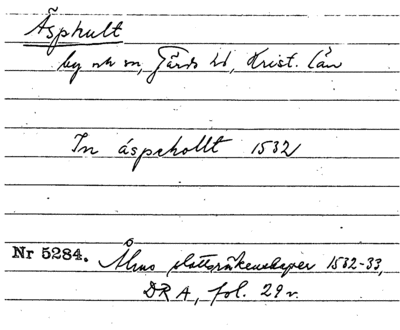 Äsphult
by o h m, Gärds hd, Krist. län
In áspehollt 1532
Nr 5284. Åhus slottsräkenskaper 1532-33,
DRA, fol. 29 v.